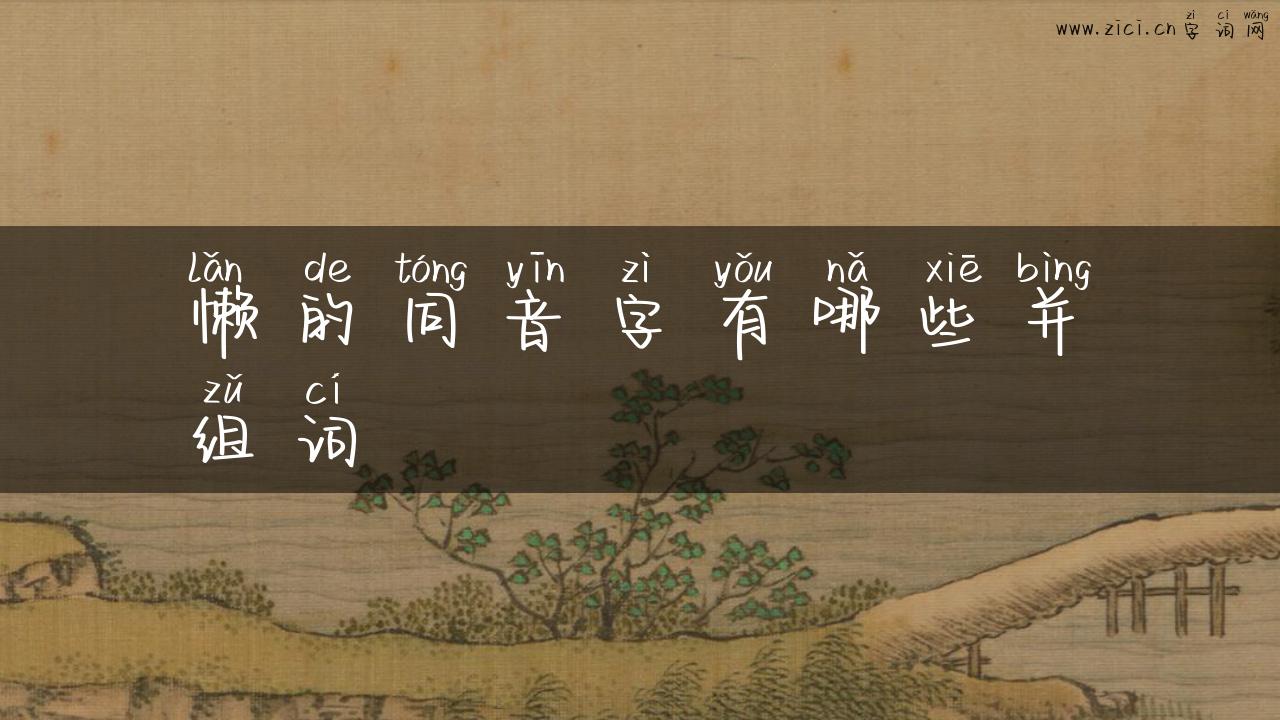 zì cí wǎng
www.zici.cn 字 词 网
lǎn de tóng yīn zì yǒu nǎ xiē bìng
懒 的 同 音 字 有 哪 些 并
zǔ cí
组 词